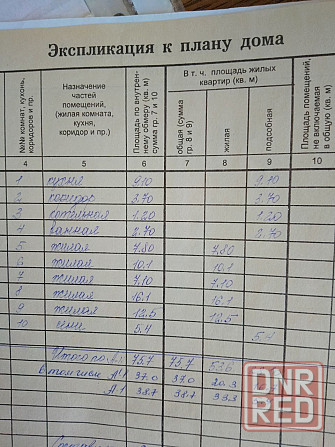 Экспликация к плану дома
№№ комнат, кухонь, коридоров и пр.
Назначение частей помещений, (жилая комната, кухня, коридор и пр.)
Площадь по внутреннему обмеру (кв. м) сумма гр. 7 и 10
В т. ч. площадь жилых квартир (кв. м)
общая (сумма гр. 8 и 9)
жилая
подсобная
Площадь помещений, не включаемая в общую (кв. м)
4 5 6 7 8 9 10
1 кухня 9.10 9.10
2 коридор 3.70 3.70
3 котельная 1.20 1.20
4 ванная 2.70 2.70
5 жилая 7.80 7.80
6 жилая 10.1 10.1
7 жилая 7.10 7.10
8 жилая 16.1 16.1
9 жилая 12.5 12.5
10 сени 5.4 5.4
Итого по 75.7 75.7 53.6
В том числе 37.0 37.0 20.3
А-1 38.7 38.7 33.3
DNR
RED